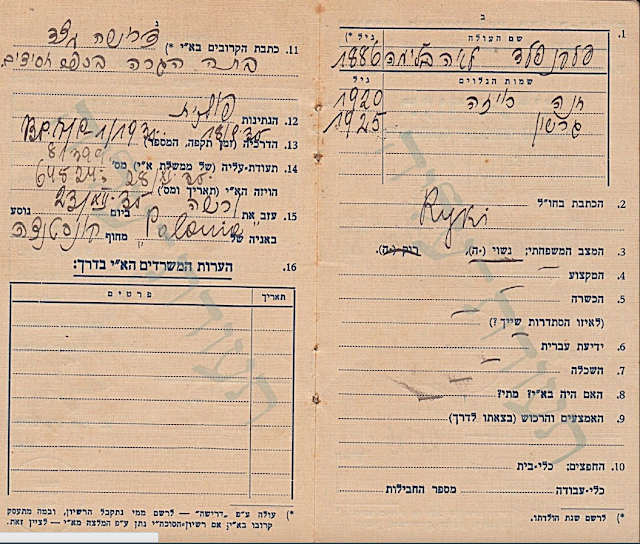 ב
.1
שם העולה
גיל *)
1886
שמות הנלוים
גיל
חנה
1920
גרשון
1925
.2 הכתבת בחו"ל
Ryki
.3 המצב המשפחתי: נשוי (.ה), רוק (.ה)
.4 המקצוע
.5 הכשרה
(לאיזו הסתדרות שייך ?)
.6 ידיעת עברית
.7 השכלה
.8 האם היה בא"י? מתי?
.9 האמצעים והרכוש (בצאתו לדרך)
.10 החפצים: כלי-בית
כלי-עבודה
מספר החבילות
*) לרשם שנת הולדתו.
ג
.11 כתבת הקרובים בא"י *)
.12 הנתינות פולנית
.13 הדרכיה (זמן תקפה, המספר)
.14 תעודת-עליה (של ממשלת א"י) מס'
הויזה הא"י (תאריך ומס')
.15 עזב את ורשה ביום נוסע
באניה של "Polonia" מחוף קונסטנצה
.16 הערות המשרדים הא"י בדרך:
תאריך
פרטים
*) עולה ע"פ „דרישה" — לרשם ממי נתקבל הרשיון, ובמה מתעסק
קרובו בא"י; אם רשיון-הסוכה"י נתן ע"פ המלצה מא"י — לציין זאת.